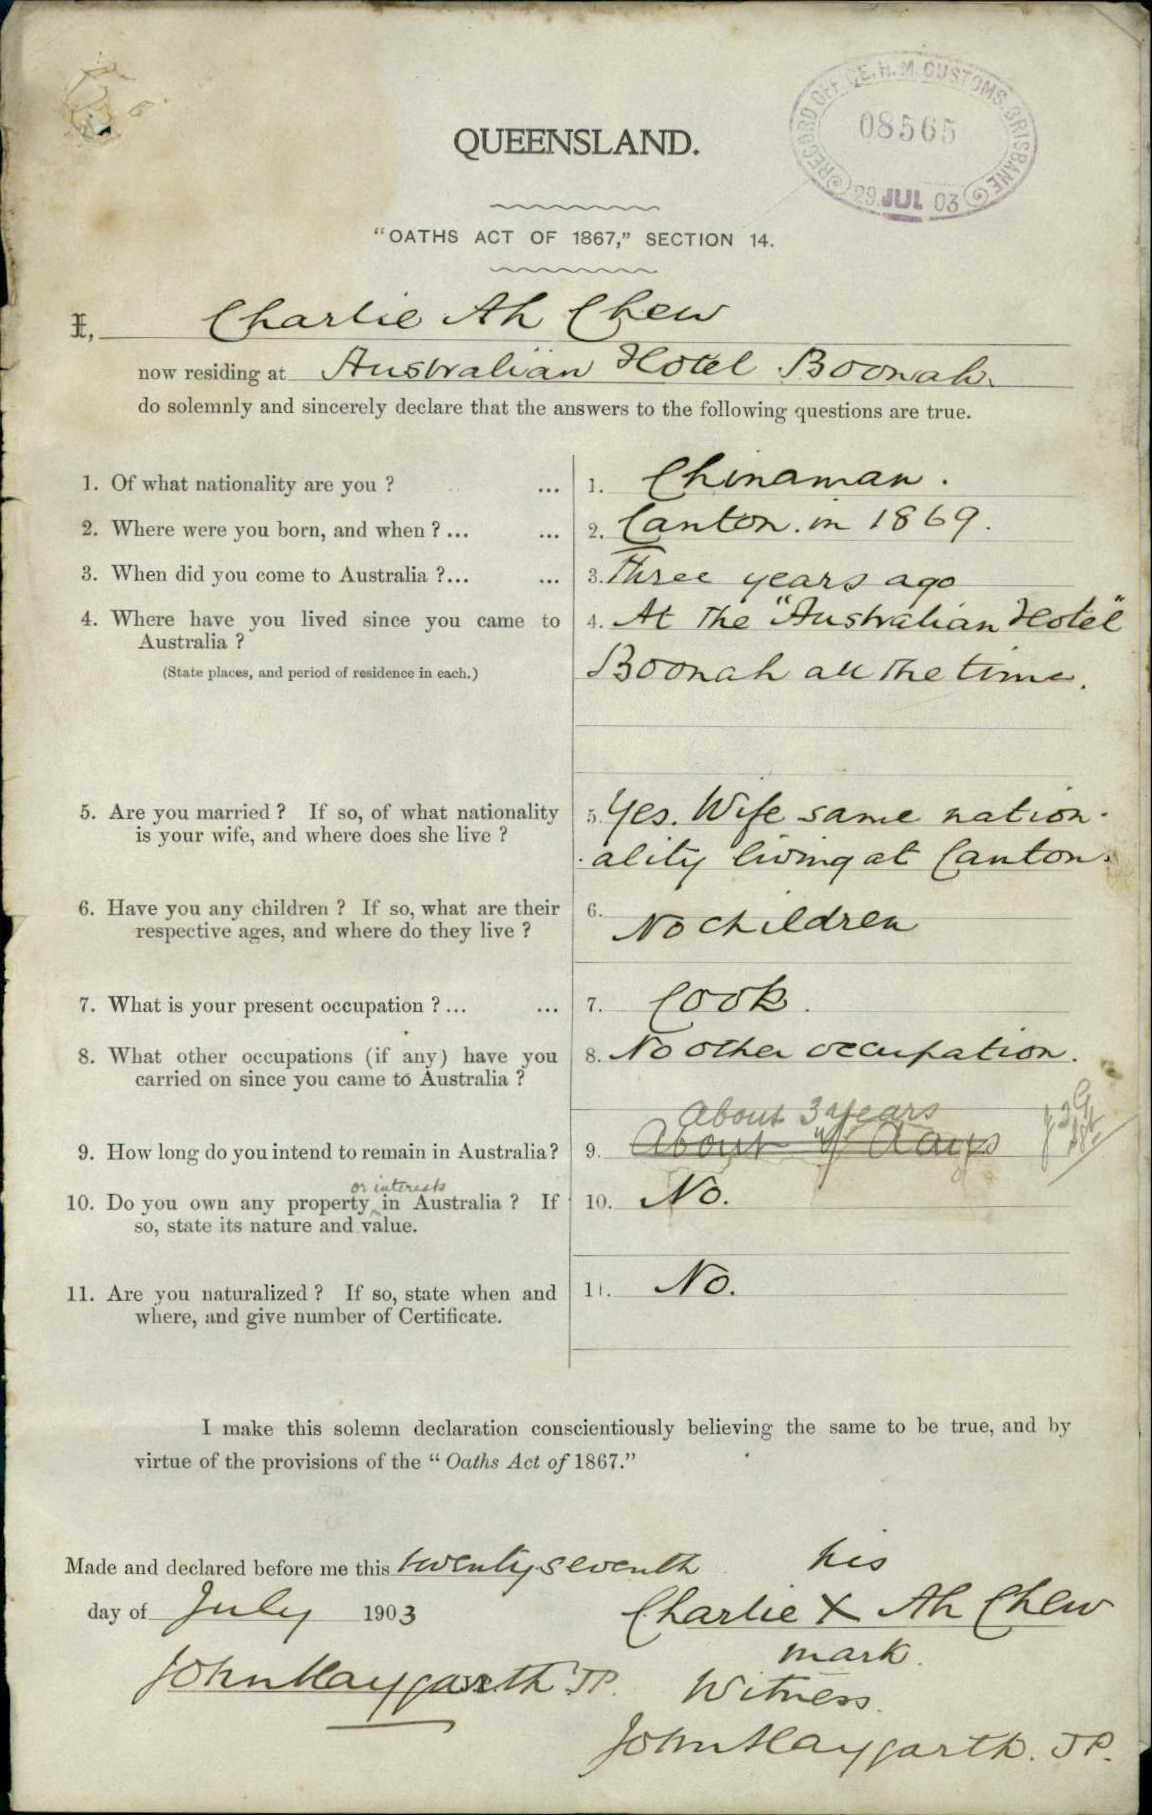 RECORD OFFICE, H.M. CUSTOMS, BRISBANE
08565
29 JUL 03
QUEENSLAND.
"OATHS ACT OF 1867," SECTION 14.
I, Charlie Ah Chew
now residing at Australian Hotel Boonah.
do solemnly and sincerely declare that the answers to the following questions are true.
1. Of what nationality are you ? ... 1. Chinaman.
2. Where were you born, and when ? ... ... 2. Canton. in 1869.
3. When did you come to Australia ?... ... 3. Three years ago
4. Where have you lived since you came to 4. At The "Australian Hotel"
Australia ?
(State places, and period of residence in each.) Boonah all the time.
5. Are you married ? If so, of what nationality 5. Yes. Wife same nation-
is your wife, and where does she live ? -ality living at Canton.
6. Have you any children ? If so, what are their 6. No children
respective ages, and where do they live ?
7. What is your present occupation ? ... ... 7. Cook.
8. What other occupations (if any) have you 8. No other occupation.
carried on since you came to Australia ?
About 3 years
9. How long do you intend to remain in Australia? 9. About days
or interests
10. Do you own any property in Australia ? If 10. No.
so, state its nature and value.
11. Are you naturalized ? If so, state when and 11. No.
where, and give number of Certificate.
I make this solemn declaration conscientiously believing the same to be true, and by
virtue of the provisions of the "Oaths Act of 1867."
Made and declared before me this twenty seventh his
day of July 1903 Charlie X Ah Chew
mark.
John Haygarth JP. Witness.
John Haygarth. JP.